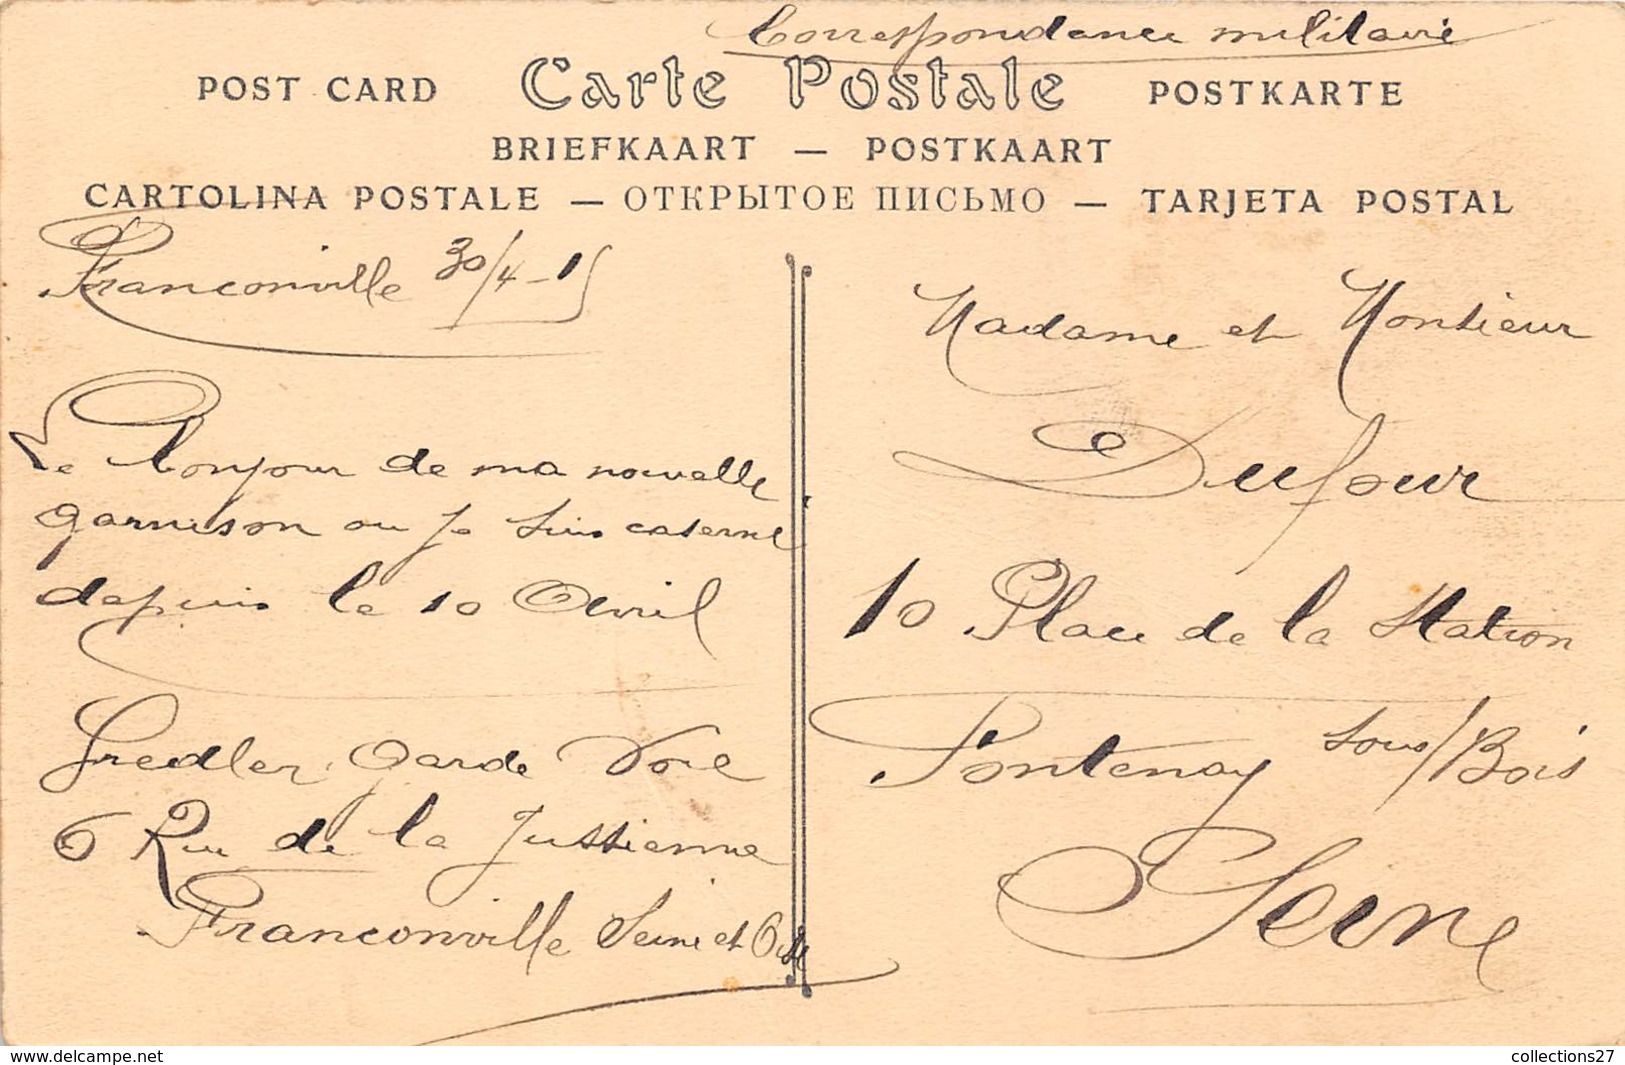 Correspondance militaire
POST CARD Carte Postale POSTKARTE
BRIEFKAART — POSTKAART
CARTOLINA POSTALE — ОТКРЫТОЕ ПИСЬМО — TARJETA POSTAL
Franconville 30/4-15
Le bonjour de ma nouvelle
garnison ou je suis caserne
depuis le 10 Avril
Fredler Garde Voie
6 Rue de la Jussienne
Franconville Seine et Oise
Madame et Monsieur
Dufour
10 Place de la Station
Fontenay sous/Bois
Seine
www.delcampe.net
collections27